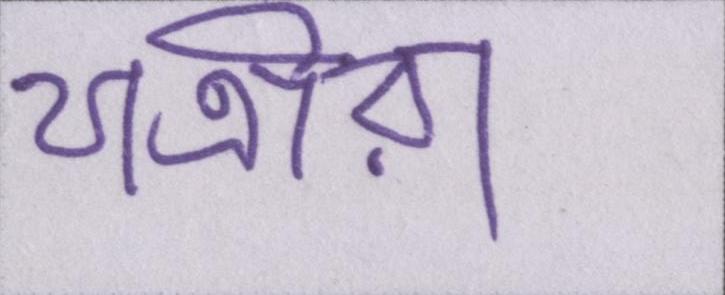 যাত্রীরা